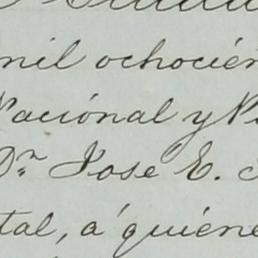 mil ochocien
Nacional y P
Dr. José E.
tal, á quiéne